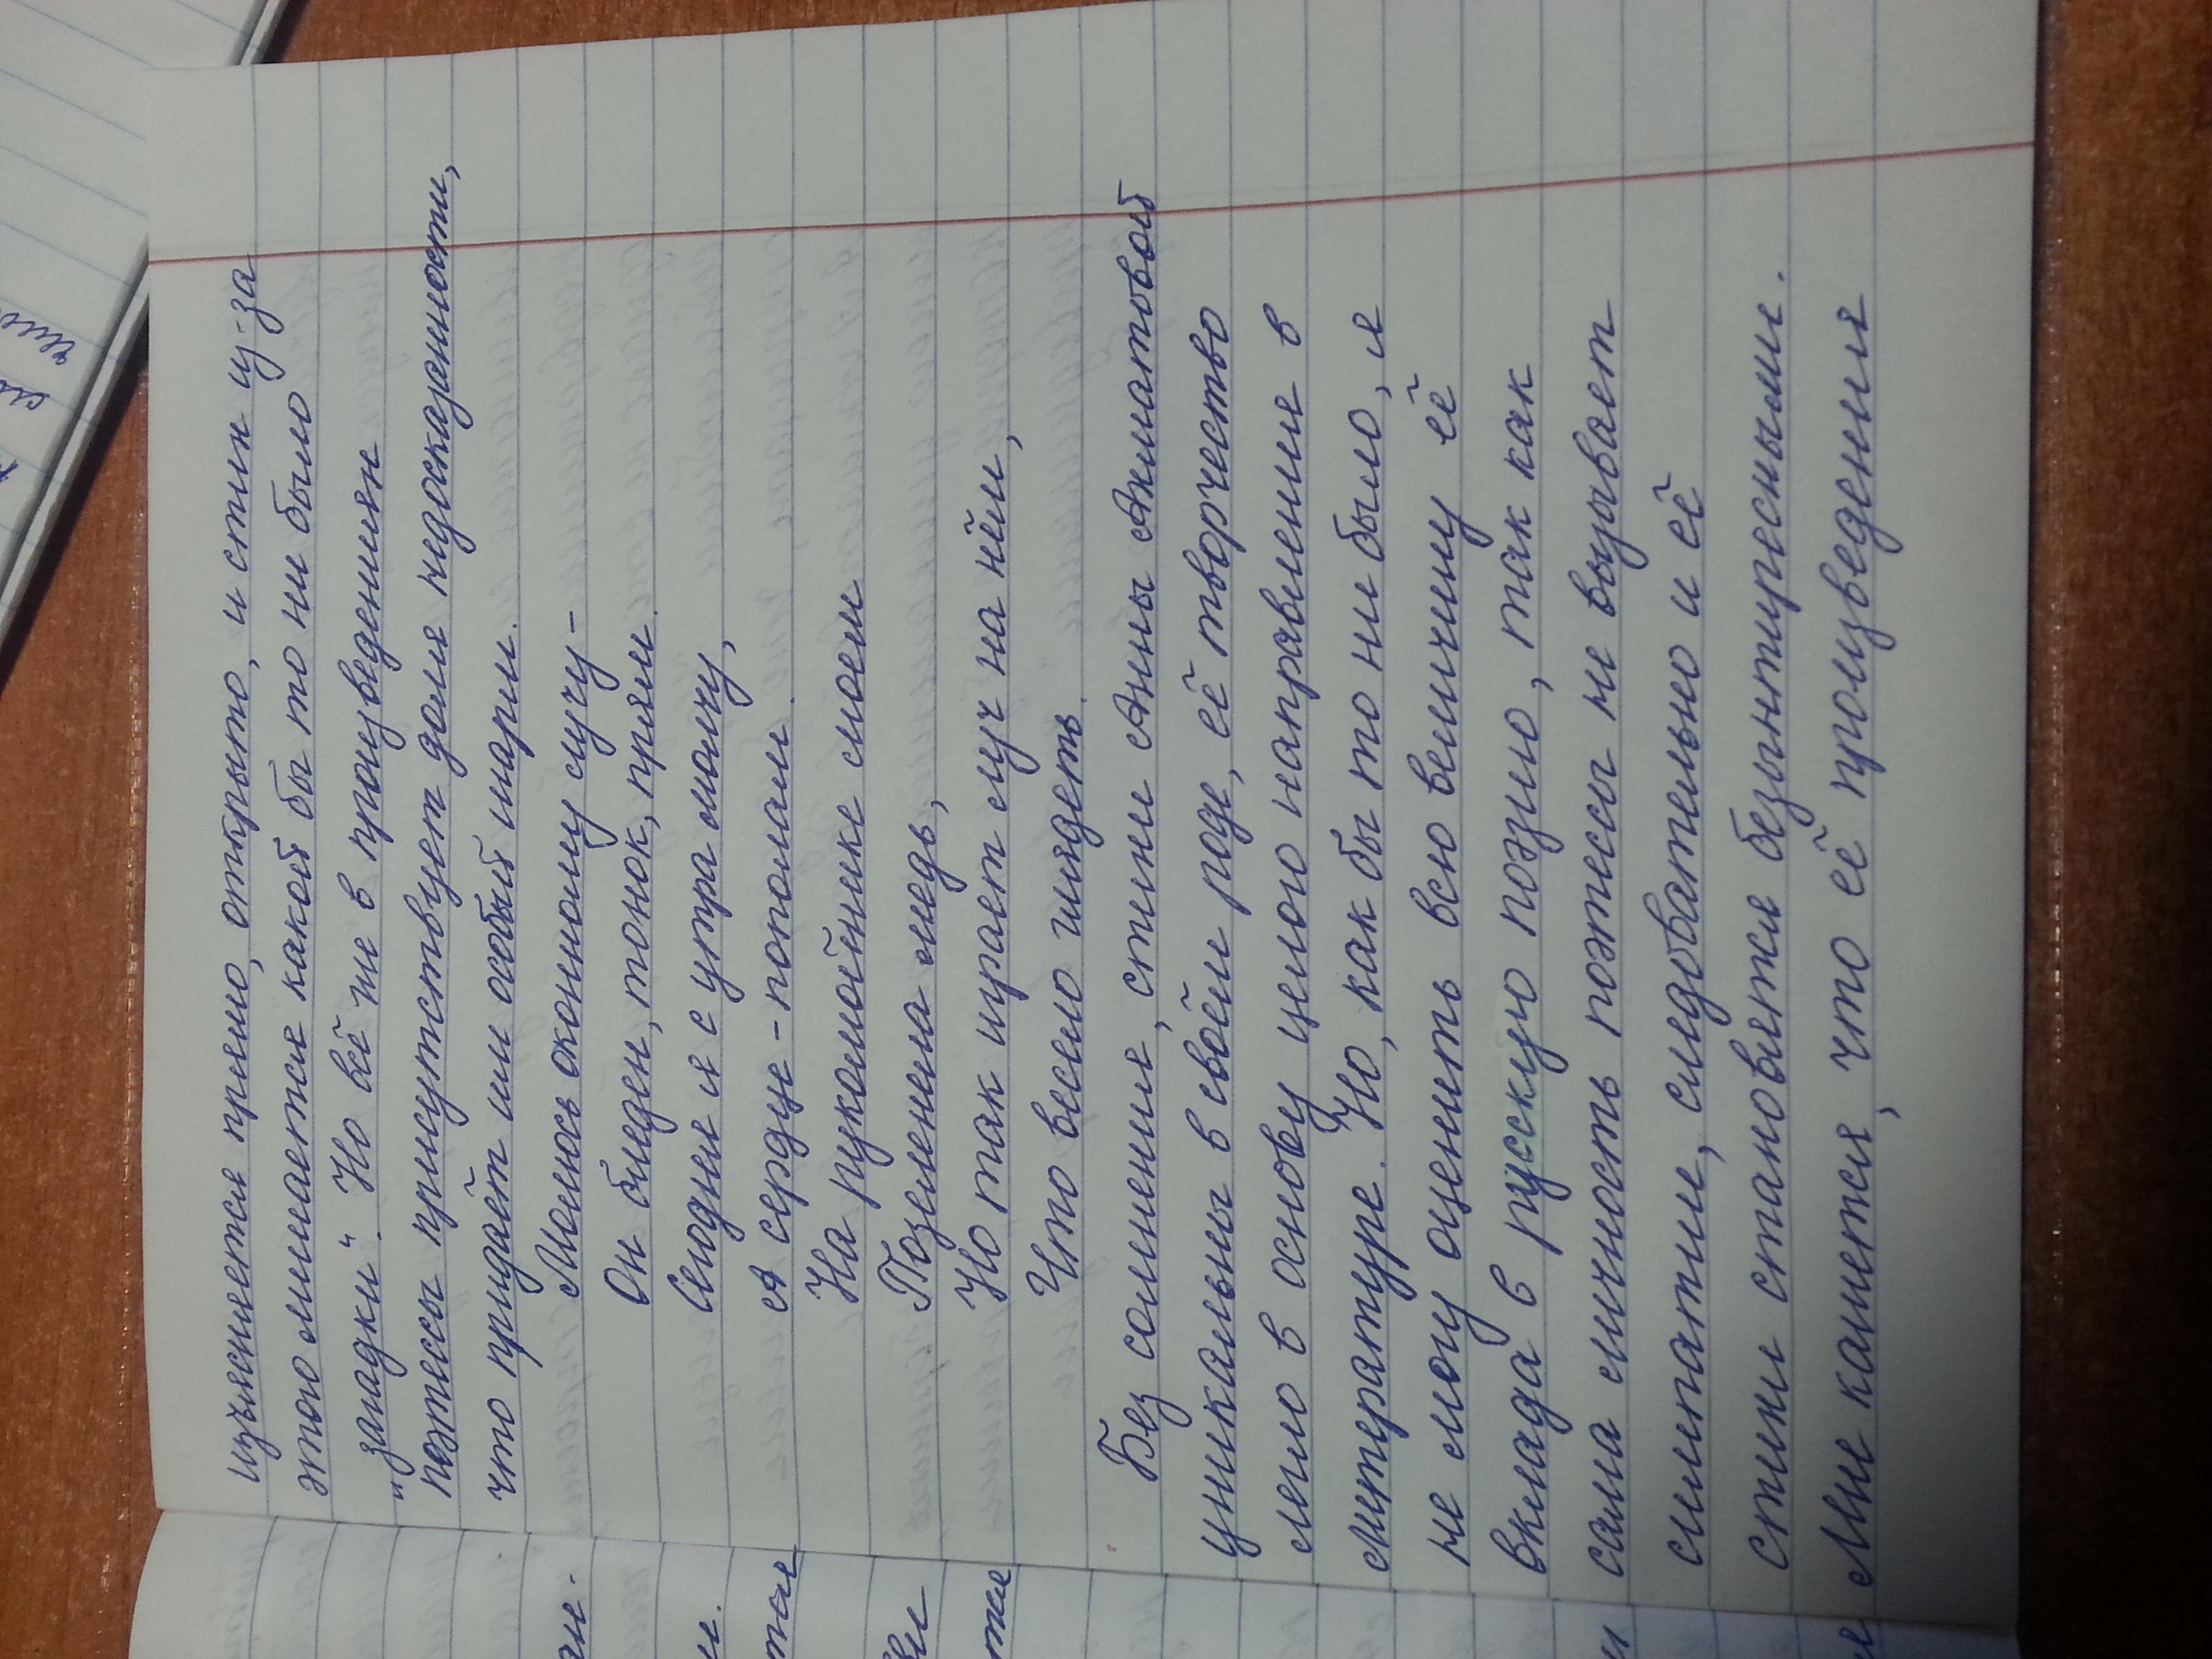 изъясняется прямо, открыто, и стих из-за
этого лишается какой бы то ни было
"загадки". Но всё же в произведениях
поэтессы присутствует доля недосказанности,
что придаёт им особый шарм.
Молюсь оконному лучу-
Он бледен, тонок, прям.
Сегодня я с утра молчу,
А сердце - пополам.
На рукомойнике моем
Позеленела медь,
Но так играет луч на нём,
Что весело глядеть.
Без сомнения, стихи Анны Ахматовой
уникальны в своём роде, её творчество
легло в основу целого направление в
литературе. Но, как бы то ни было, я
не могу оценить всю величину её
вклада в русскую поэзию, так как
сама личность поэтессы не вызывает
симпатии, следовательно и её
стихи становятся безынтиресными.
Мне кажется, что её произведения